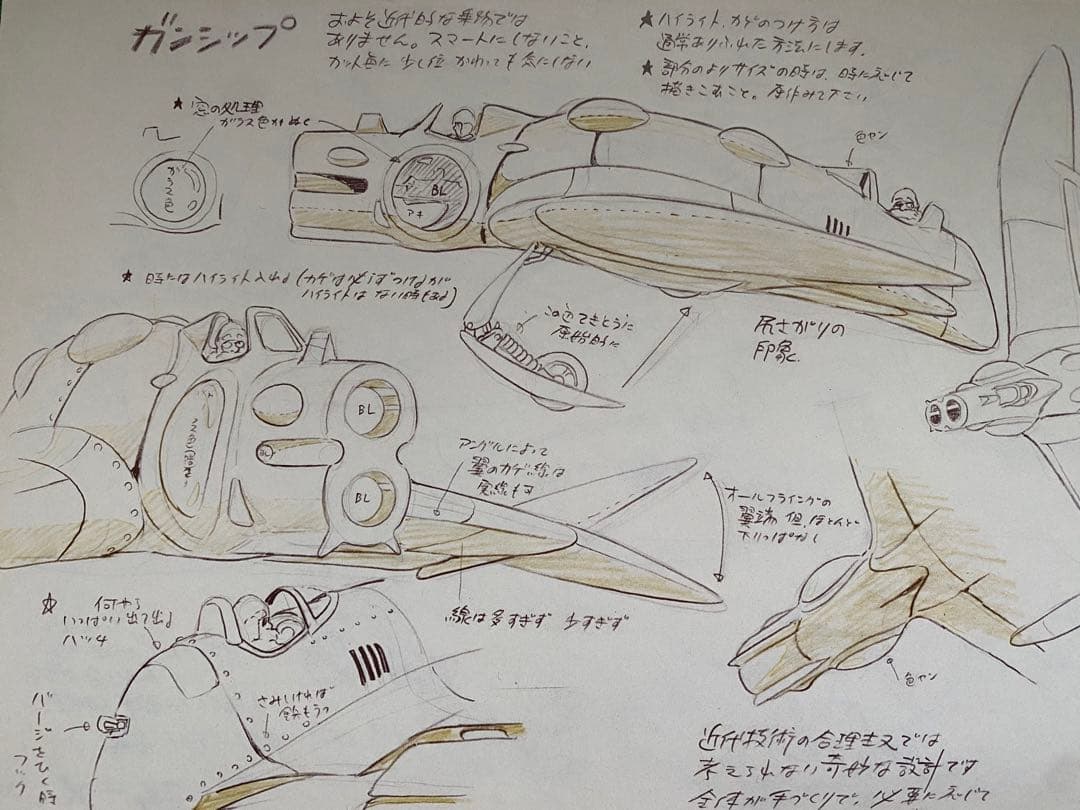 ガンシップ
およそ近代的な乗物では
ありません。スマートにしないこと、
カット毎に少し位かわっても気にしない
★ハイライト、カゲのつけ方は
通常ありふれた方法にします。
★部分のよりサイズの時は、時に応じて
描きこむこと。原作みて下さい
★窓の処理
ガラス色かぬく
ガラス色
BL
アキ
色ヤン
★時にはハイライト入れる(カゲは必ずつけるが
ハイライトはない時もある)
この辺てきとうに
原始的に
尻さがりの
印象
BL
BL
BL
アングルによって
翼のカゲ線は
実線もす
オールフライングの
翼端 但、ほとんど
下りっぱなし
線は多すぎず 少すぎず
☆ 何やら
いっぱい出て出る
ハッチ
さみしければ
鋲もうつ
バージをひく時
フック
色ヤン
近代技術の合理主義では
考えられない奇妙な設計です
全体が手づくりで、必要に応じて